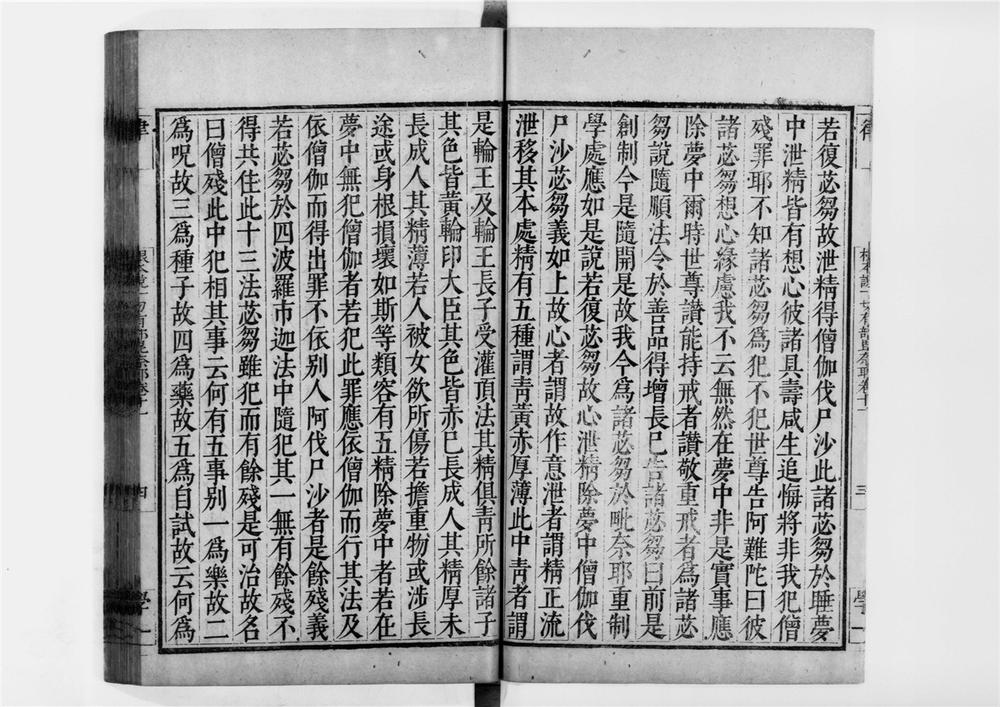 若復苾芻故泄精得僧伽伐尸沙此諸苾芻於睡夢
中泄精皆有想心彼諸具壽咸生追悔將非我犯僧
殘罪耶不知諸苾芻爲犯不犯世尊告阿難陀曰彼
諸苾芻想心緣慮我不云無然在夢中非是實事應
除夢中爾時世尊讚能持戒者讚敬重戒者爲諸苾
芻說隨順法令於善品得增長已告諸苾芻曰前是
創制今是隨開是故我今爲諸苾芻於毗奈耶重制
學處應如是說若復苾芻故心泄精除夢中僧伽伐
尸沙苾芻義如上故心者謂故作意泄者謂精正流
泄移其本處精有五種謂靑黃赤厚薄此中靑者謂
律
根本說一切有部毘奈耶卷十一
三
學一
是輪王及輪王長子受灌頂法其精俱靑所餘諸子
其色皆黃輪印大臣其色皆赤已長成人其精厚未
長成人其精薄若人被女欲所傷若擔重物或涉長
途或身根損壞如斯等類容有五精除夢中者若在
夢中無犯僧伽者若犯此罪應依僧伽而行其法及
依僧伽而得出罪不依别人阿伐尸沙者是餘殘義
若苾芻於四波羅市迦法中隨犯其一無有餘殘不
得共住此十三法苾芻雖犯而有餘殘是可治故名
曰僧殘此中犯相其事云何有五事别一爲樂故二
爲呪故三爲種子故四爲藥故五爲自試故云何爲
律
根本說一切有部毘奈耶卷十一
四
學一